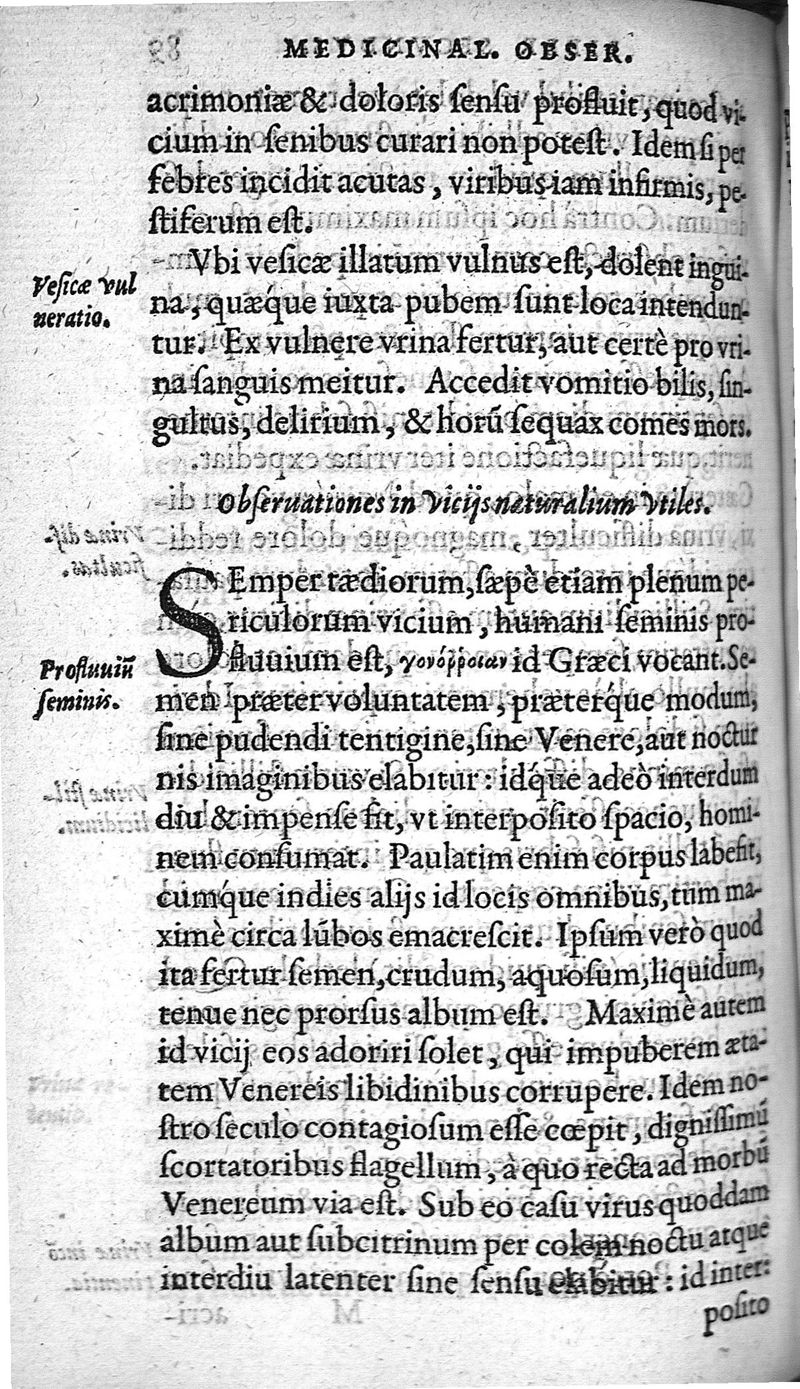 MEDICINAL. OBSER.
acrimoniæ & doloris ſenſu profluit, quod vi-
cium in ſenibus curari non poteſt. Idem ſi per
febres incidit acutas, viribus iam infirmis, pe-
ſtiferum eſt.
Vbi veſicæ illatum vulnus eſt, dolent ingui-
Veſicæ vul
neratio.
na, quæq́ue iuxta pubem ſunt loca intendun-
tur. Ex vulnere vrina fertur, aut certè pro vri-
na ſanguis meitur. Accedit vomitio bilis, ſin-
gultus, delirium, & horũ ſequax comes mors.
Obſeruationes in vicijs naturalium vtiles.
SEmper tædiorum, ſæpè etiam plenum pe-
riculorum vicium, humani ſeminis pro-
Profluuiũ
ſeminis.
fluuium eſt, γονόρροιαν id Græci vocant. Se-
men præter voluntatem, præterq́ue modum,
ſine pudendi tentigine, ſine Venere, aut noctur
nis imaginibus elabitur: idq́ue adeò interdum
diu & impenſe fit, vt interpoſito ſpacio, homi-
nem conſumat. Paulatim enim corpus labefit,
cumq́ue indies alijs id locis omnibus, tum ma-
ximè circa lũbos emacreſcit. Ipſum verò quod
ita fertur ſemen, crudum, aquoſum, liquidum,
tenue nec prorſus album eſt. Maximè autem
id vicij eos adoriri ſolet, qui impuberem æta-
tem Venereis libidinibus corrupere. Idem no-
ſtro ſeculo contagioſum eſſe cœpit, digniſſimũ
ſcortatoribus flagellum, à quo recta ad morbũ
Venereum via eſt. Sub eo caſu virus quoddam
album aut ſubcitrinum per colem noctu atque
interdiu latenter ſine ſenſu elabitur: id inter:
poſito